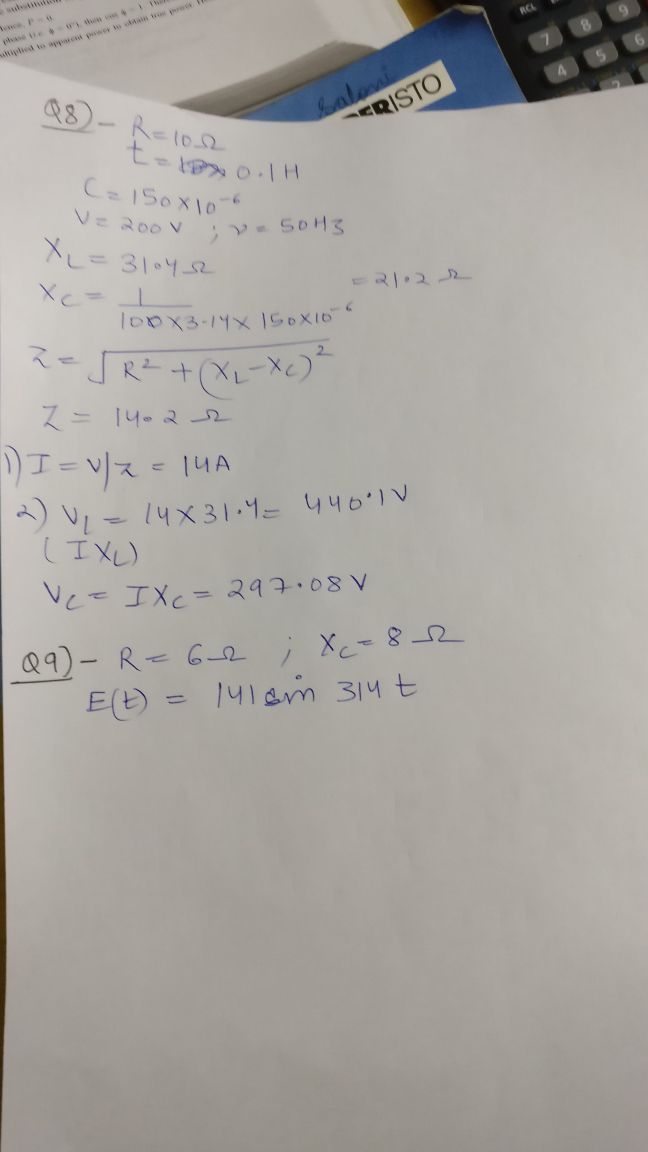 e substitution
hence, P = 0.
phase (i.e. φ = 0°), then cos φ = 1.
ultiplied to apparent power to obtain true power
Saloni
ERISTO
RCL
7 8 9
4 5 6
Q8)- R=10Ω
t = 0.1H
C = 150×10⁻⁶
V= 200V ; ν = 50Hz
X_L = 31.4Ω
X_C = 1/(100×3.14×150×10⁻⁶) = 21.2 Ω
Z = √(R² + (X_L-X_C)²)
Z = 14.2 Ω
1) I = V/z = 14A
2) V_L = 14×31.4= 440.1V
(IX_L)
V_C = IX_C = 297.08V
Q9)- R = 6Ω ; X_C = 8Ω
E(t) = 141 sin 314 t